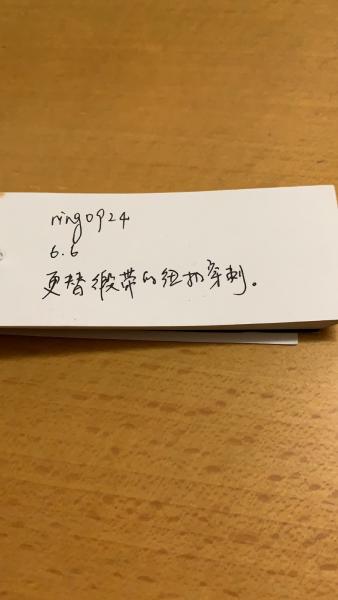 ring0924
6.6
更替缎带的纽扣穿刺。